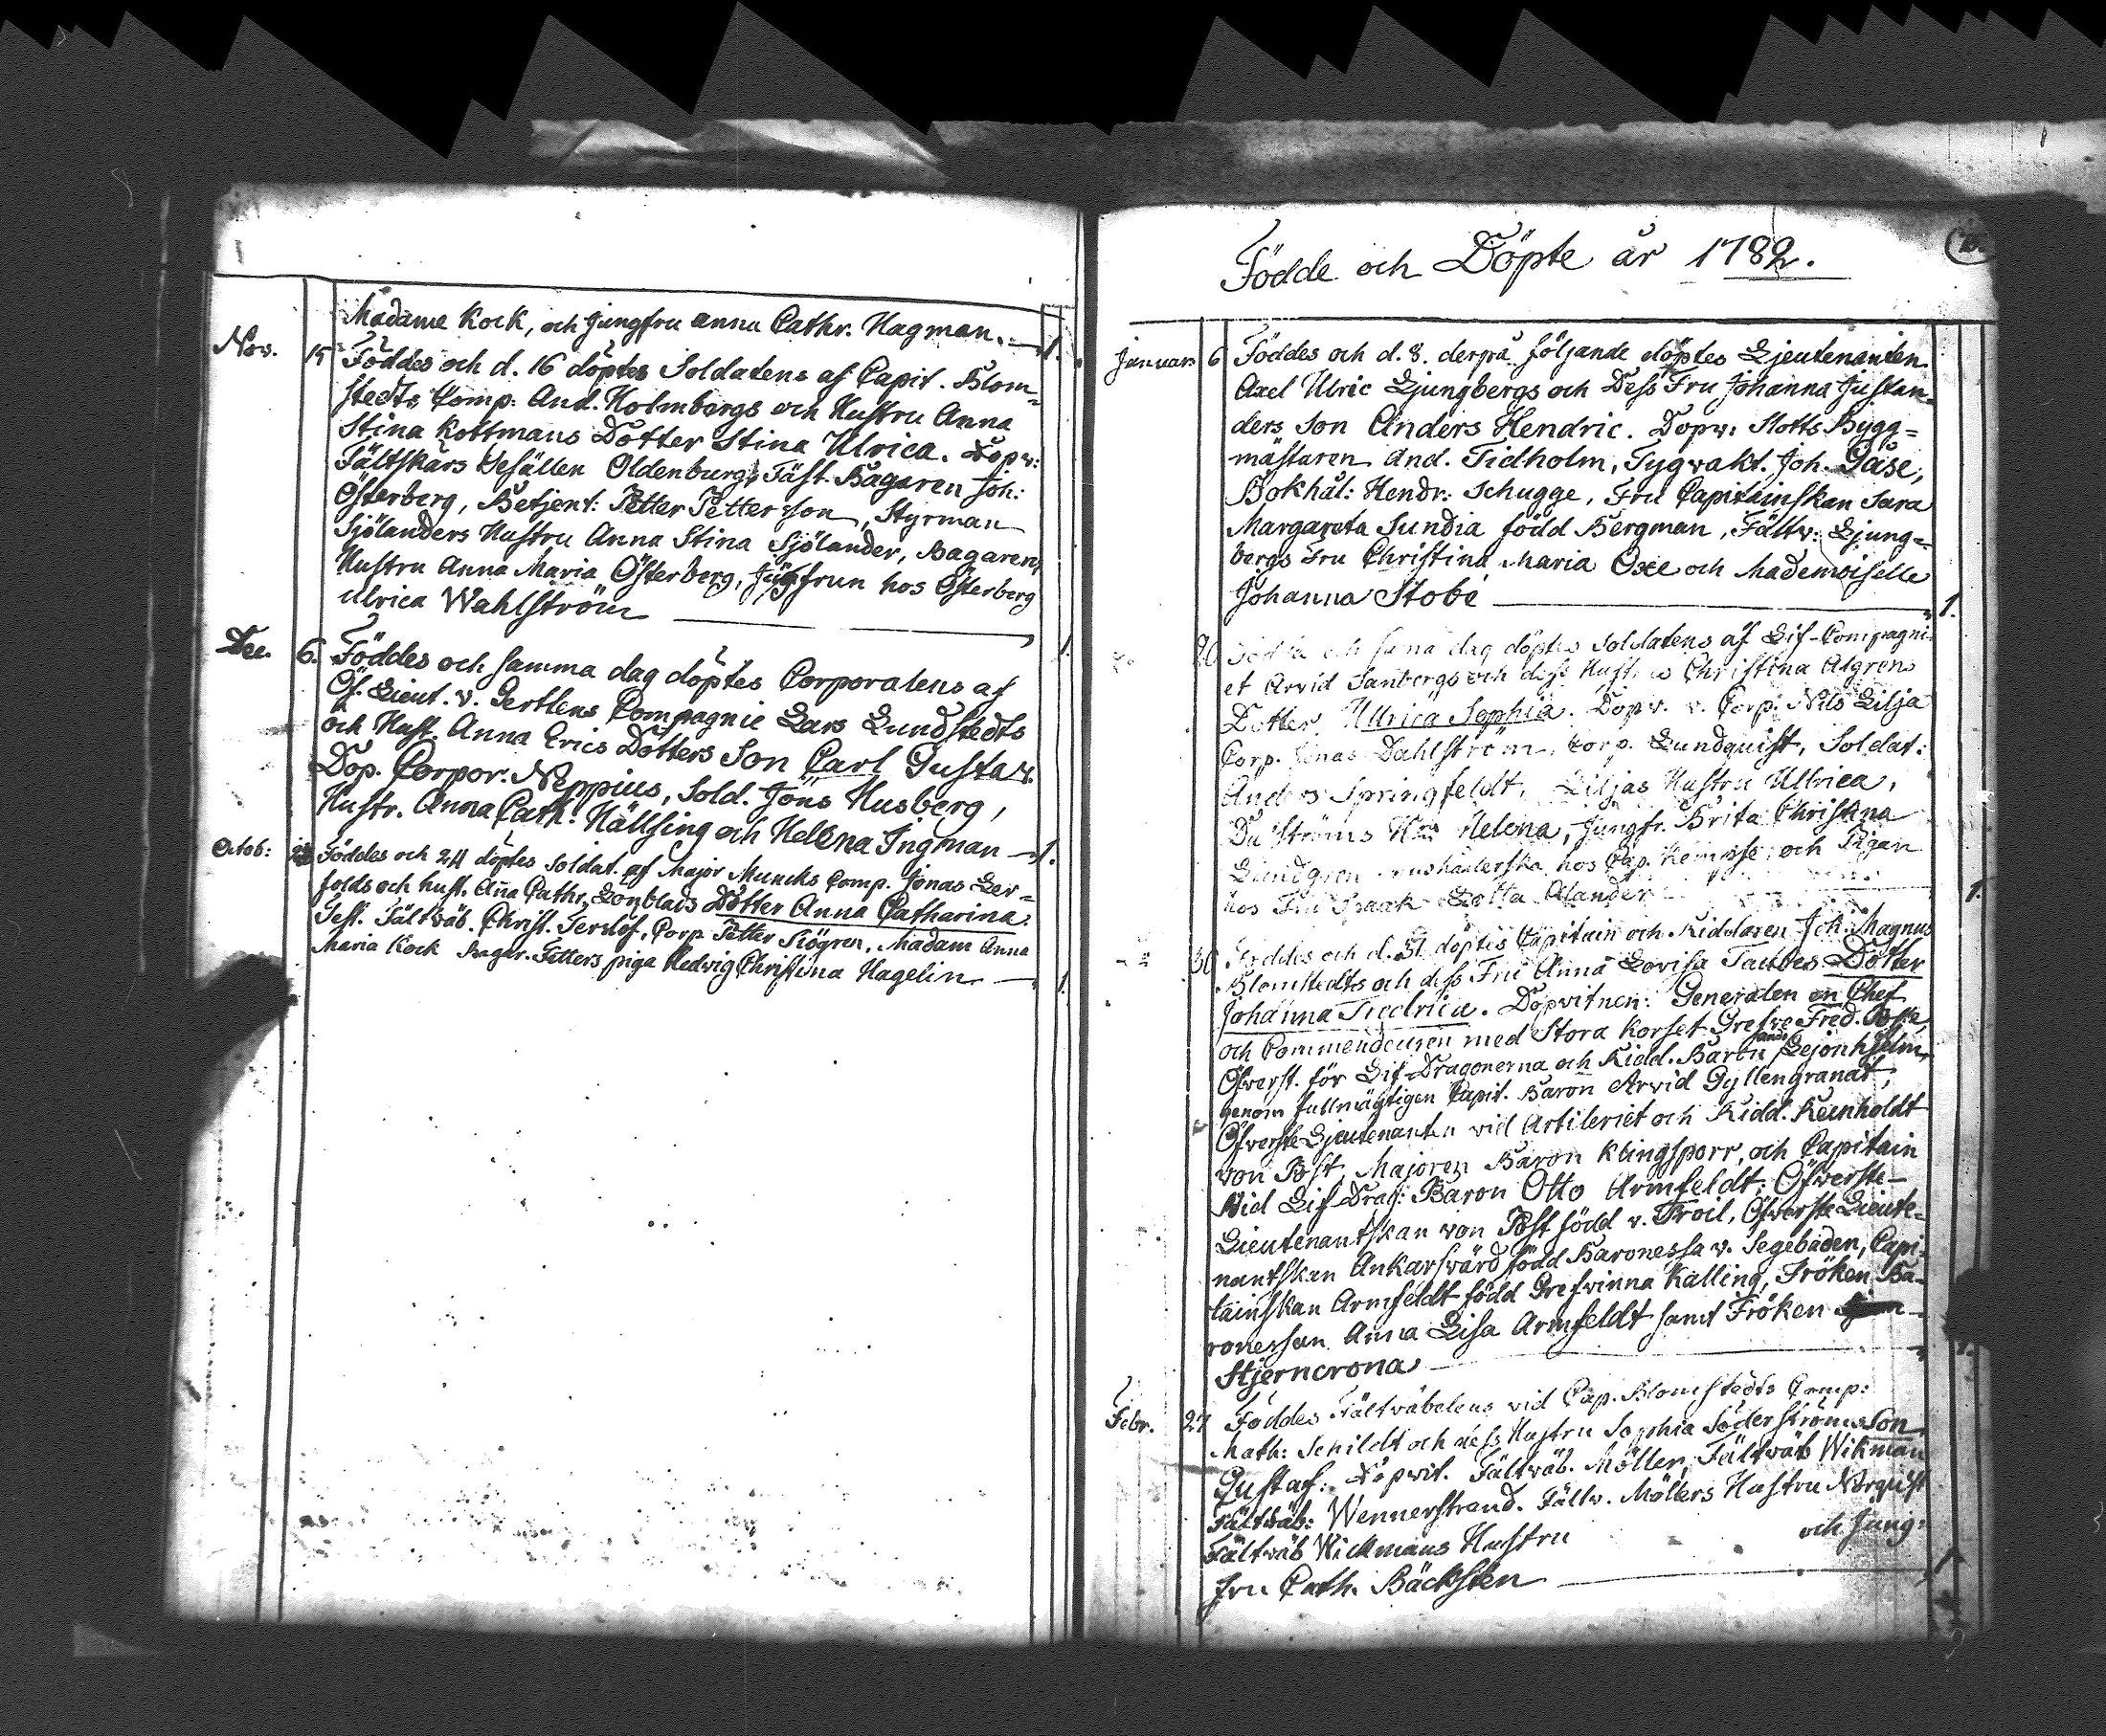 Madame Kock, och Jungfru Anna Cathr. Hagman. — 1.
Nov. 15 Föddes och d. 16 döptes Soldatens af Capit. Blom=
stedts Comp: And. Holmbergs och Hustru Anna
Stina Kottmans Dotter Stina Ulrica. Dopw:
Fältskärs Gesällen Oldenburg, Fäst. Bagaren Joh:
Österberg, Betjent: Petter Petterson, Styrman
Sjölanders Hustru Anna Stina Sjölander, Bagarens
Hustru Anna Maria Österberg, Jungfrun hos Österberg
Ulrica Wahlström — 1.
Dec. 6. Föddes och samma dag döptes Corporalens af
Öf. Lieut. v. Gertlens Compagnie Lars Lundstedts
och Hust. Anna Erics Dotters Son Carl Gustav.
Dop. Corpor. Neppius, Sold. Jöns Husberg,
Hustr. Anna Cath. Hällsing och Helena Ingman — 1.
Octob: Föddes och 24 döptes Soldat. af Major Muncks Comp. Jonas Ler=
folds och hust. Aña Cathr. Lönblads Dotter Anna Catharina.
Test. Fältwäb. Christ. Terslöf, Corp. Petter Siögren, Madam Anna
Maria Kock Bagar. Fetters piga Hedwig Christina Hagelin — 1.
Födde och Döpte år 1782.
Januari 6 Föddes och d. 8. derpå följande döptes Ljeutenanten
Axel Ulric Ljungbergs och Dess Fru Johanna Justan=
ders Son Anders Hendric. Dopw: Slotts Bygg=
mästaren And. Tidholm, Tygvakt. Joh. Gåse,
Bokhål: Hendr: Schugge, Fru Capitainskan Sara
Margareta Sundia född Bergman, Fältw: Ljung=
bergs Fru Christina Maria Oxe och Mademoiselle
Johanna Stobé — 1.
20 Föddes och sama dag döptes Soldatens af Lif-Compagni
et Arvid Sanbergs och dess Hustrus Christina Algrens
Dotter Ullrica Sophia. Dopv. v. Corp. Nils Lilja
Corp. Jonas Dahlström, Corp. Lundquist, Soldat:
Anders Springfeldt, Liljas Hustru Ullrica,
Ströms Helena, Jungfr. Brita Christina
Lundgren hushållerska hos Cap. och Pigan
hos Fru Lotta Alander — 1.
30 Föddes och d. 31 döptes Capitain och Riddaren Joh. Magnus
Blomstedts och dess Fru Anna Lovisa Taubes Dotter
Johanna Fredrica. Dopvitnen: Generalen en Chef
och Commendeuren med Stora Korset Grefve Fred. Posse,
Öfverst. för Lif-Dragonerna och Ridd. Baron Lejonhjelm,
genom fullmägtigen Capit. Baron Arvid Gyllengranat,
Öfverste Ljeutenanten vid Artileriet och Ridd. Reinholdt
von Post, Majoren Baron Klingsporr, och Capitain
Vid Lif-Drag: Baron Otto Armfeldt; Öfverste-
Lieutenantskan von Post född v. Troil, Öfverste Lieute=
nantskan Ankarsvärd född Baronessa v. Segebaden, Capi=
tainskan Armfeldt född Grefvinna Kalling, Fröken Ba-
ronessan Anna Lisa Armfeldt samt Fröken
Stjerncrona — 1.
Febr. 27 Föddes Fältväbelens vid Cap. Blomstedts Comp:
Math: Schildt och dess Hustru Sophia Söderströms Son
Gustaf. Dopvit. Fältväb. Möller, Fältväb Wikman
Fältväb: Wennerstrand. Fältv. Möllers Hustru Norquist
Fältväb Wickmans Hustru och Jung=
fru Cath. Bäcksten — 1